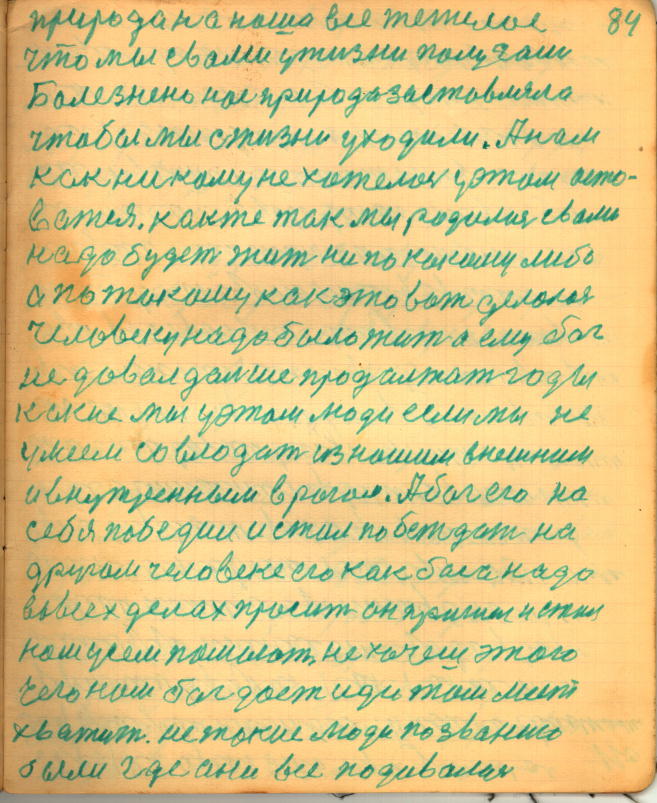 84
природа на наша все тежелое
что мы своми ў жизни получали
Болезнено нас природа заставляла
чтобы мы с жизни уходили. А нам
как никому не хотелося ў этом осто-
ватся. как же так мы родилися своми
надо будет жит ни по какому либо
а по такому как это вот делолося
человеку надо было жит а ему бог
не довал дальше продалжат годы
какие мы ў этом люди если мы не
умеем совлодат из нашим внешним
и внутренным врогом. А бог его на
себя победил и стал побеждат на
другом человеке его как бога надо
во всех делах просит он пришел и стал
нам усем помогат, не хочеш этого
чего нам бог дает иди там мест
хватит. не такие люди по званию
были где они все подевалися